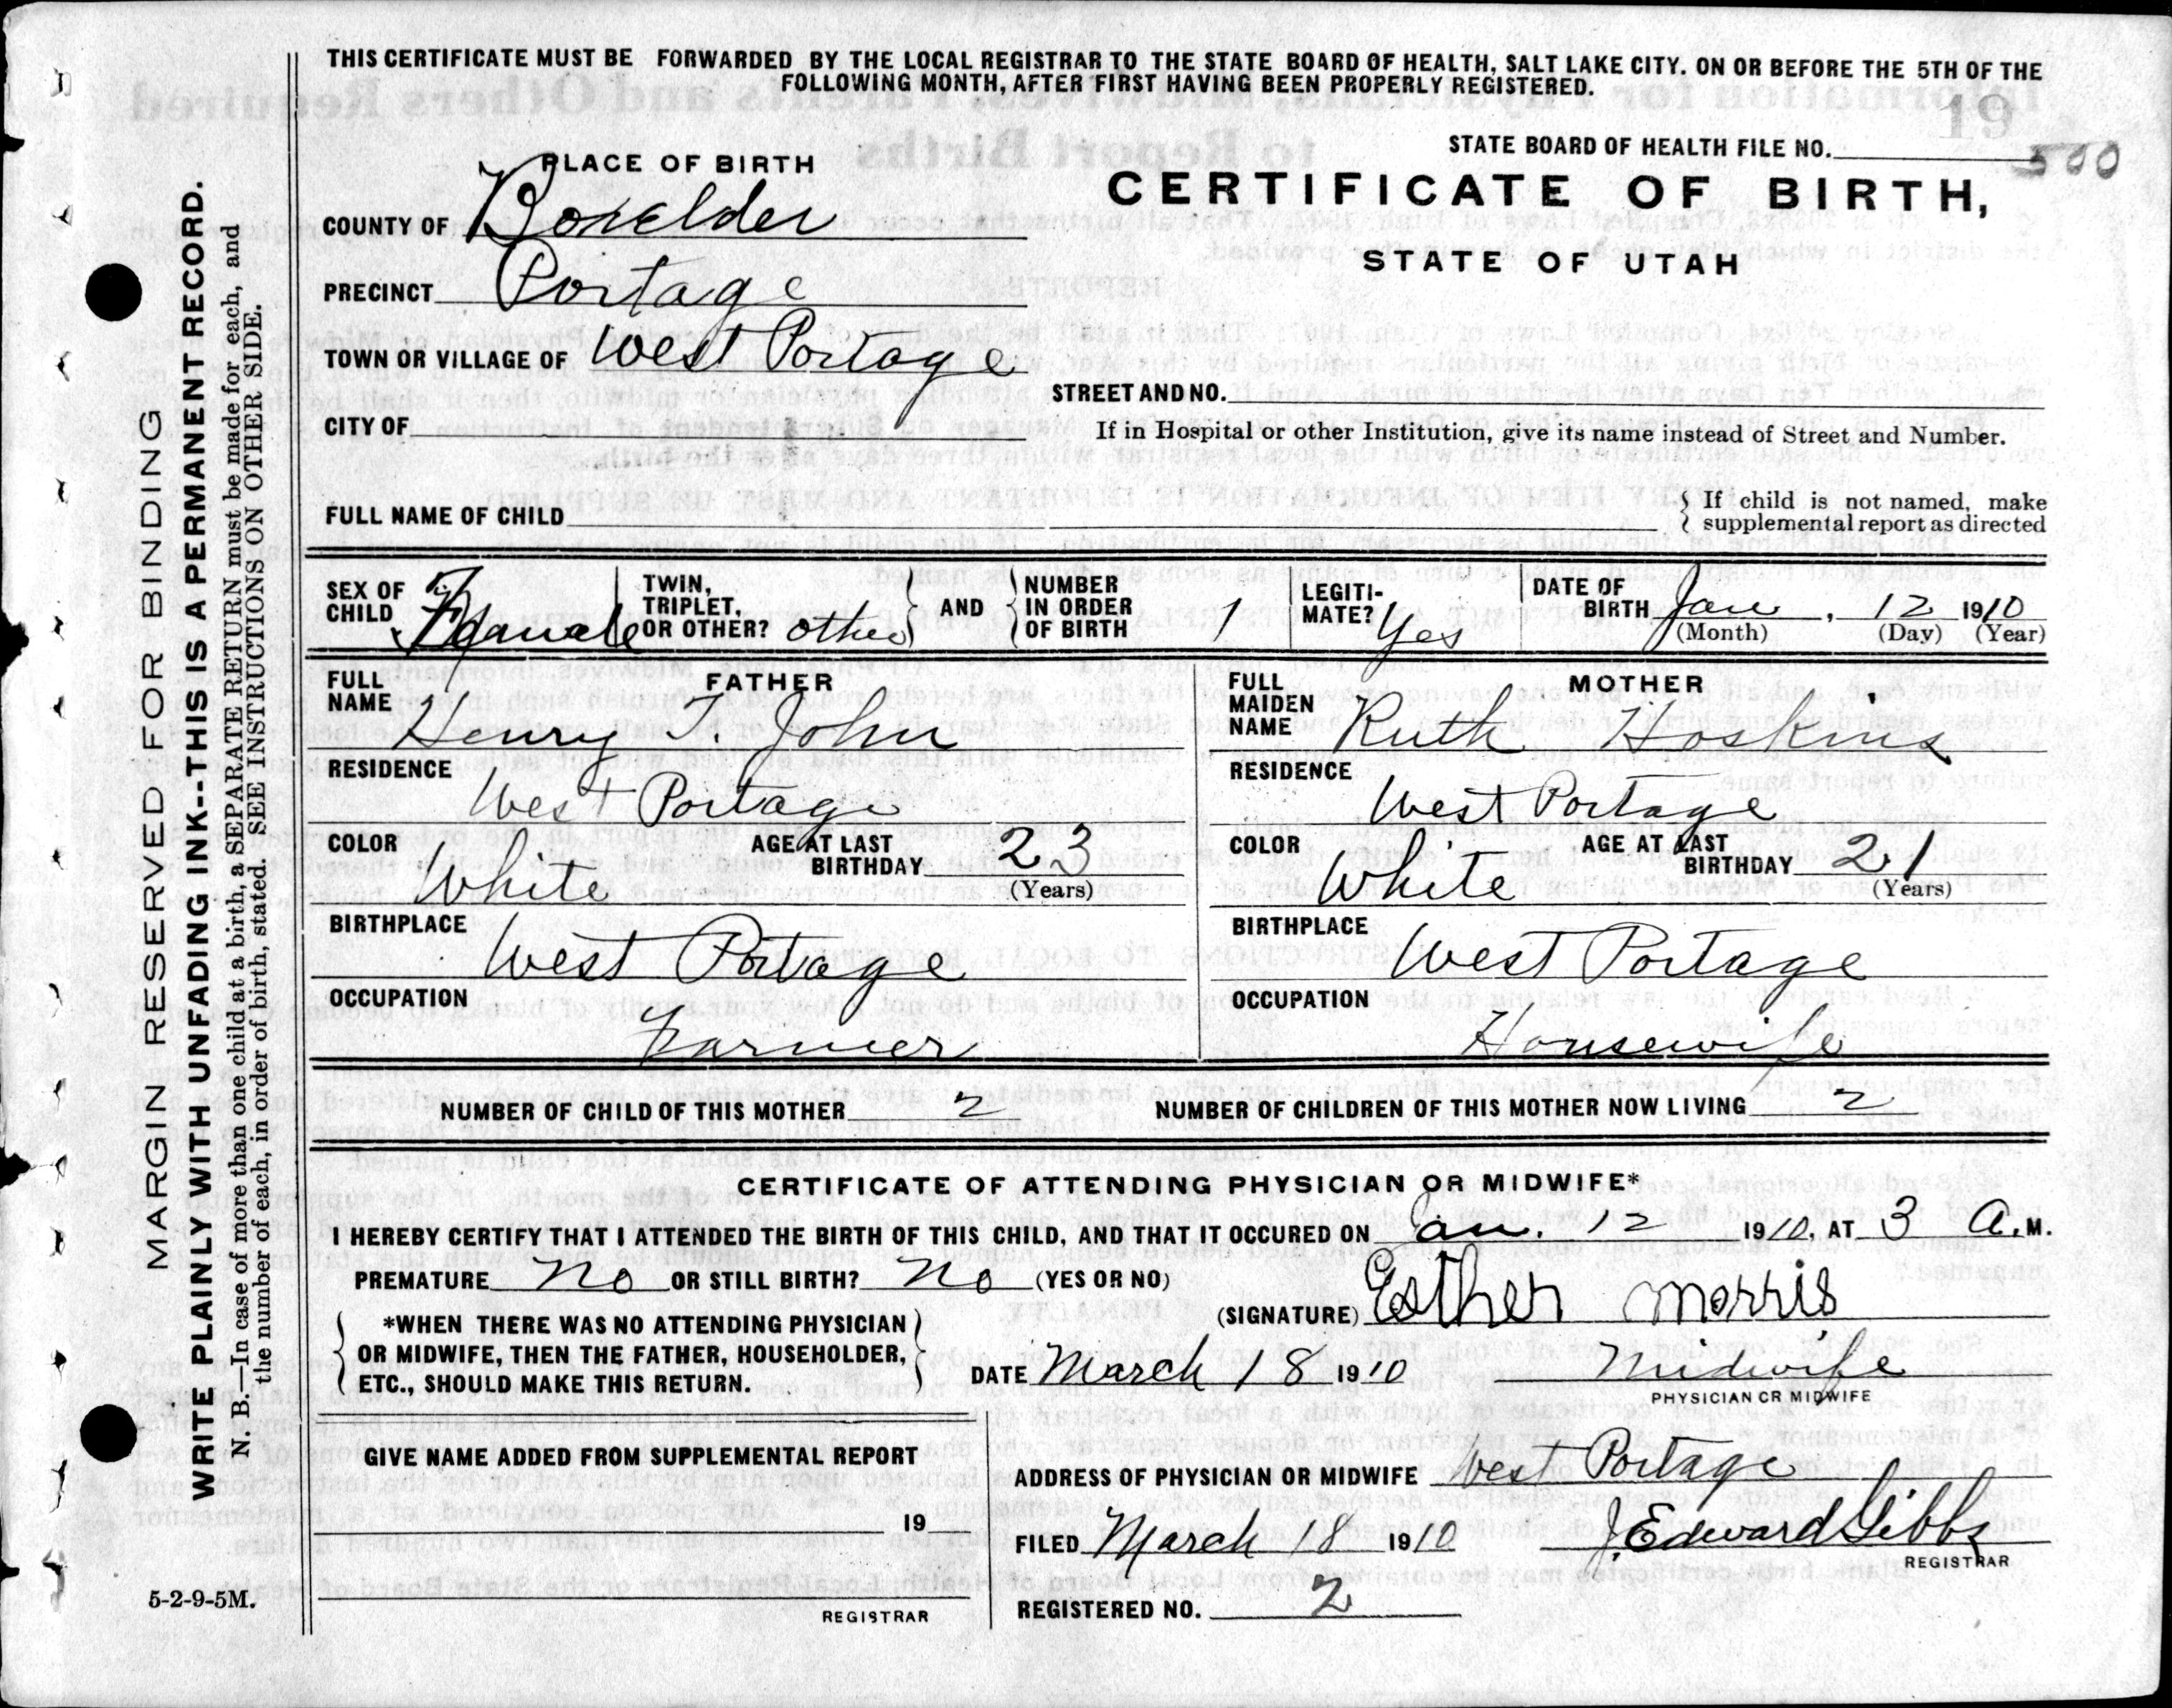 THIS CERTIFICATE MUST BE FORWARDED BY THE LOCAL REGISTRAR TO THE STATE BOARD OF HEALTH, SALT LAKE CITY. ON OR BEFORE THE 5TH OF THE
FOLLOWING MONTH, AFTER FIRST HAVING BEEN PROPERLY REGISTERED.
19
STATE BOARD OF HEALTH FILE NO. 500
PLACE OF BIRTH
CERTIFICATE OF BIRTH,
STATE OF UTAH
COUNTY OF Boxelder
PRECINCT Portage
TOWN OR VILLAGE OF West Portage
STREET AND NO.
CITY OF
If in Hospital or other Institution, give its name instead of Street and Number.
FULL NAME OF CHILD
If child is not named, make
supplemental report as directed
SEX OF CHILD Female
TWIN, TRIPLET, OR OTHER? other
AND
NUMBER IN ORDER OF BIRTH 1
LEGITI-MATE? Yes
DATE OF BIRTH Jan, 12 1910
(Month) (Day) (Year)
FATHER
FULL NAME Henry T. John
RESIDENCE
West Portage
COLOR White
AGE AT LAST BIRTHDAY 23
(Years)
BIRTHPLACE
West Portage
OCCUPATION
Farmer
MOTHER
FULL MAIDEN NAME Ruth Hoskins
RESIDENCE
West Portage
COLOR White
AGE AT LAST BIRTHDAY 21
(Years)
BIRTHPLACE
West Portage
OCCUPATION
Housewife
NUMBER OF CHILD OF THIS MOTHER 2 NUMBER OF CHILDREN OF THIS MOTHER NOW LIVING 2
CERTIFICATE OF ATTENDING PHYSICIAN OR MIDWIFE*
I HEREBY CERTIFY THAT I ATTENDED THE BIRTH OF THIS CHILD, AND THAT IT OCCURED ON Jan. 12 1910, AT 3 A.M.
PREMATURE No OR STILL BIRTH? No (YES OR NO)
(SIGNATURE) Esther Morris
*WHEN THERE WAS NO ATTENDING PHYSICIAN
OR MIDWIFE, THEN THE FATHER, HOUSEHOLDER,
ETC., SHOULD MAKE THIS RETURN.
DATE March 18 1910 Midwife
PHYSICIAN OR MIDWIFE
GIVE NAME ADDED FROM SUPPLEMENTAL REPORT
19
REGISTRAR
ADDRESS OF PHYSICIAN OR MIDWIFE West Portage
FILED March 18 1910 J. Edward Gibbs
REGISTRAR
REGISTERED NO. 2
5-2-9-5M.
MARGIN RESERVED FOR BINDING
WRITE PLAINLY WITH UNFADING INK--THIS IS A PERMANENT RECORD.
N. B.—In case of more than one child at a birth, a SEPARATE RETURN must be made for each, and
the number of each, in order of birth, stated. SEE INSTRUCTIONS ON OTHER SIDE.